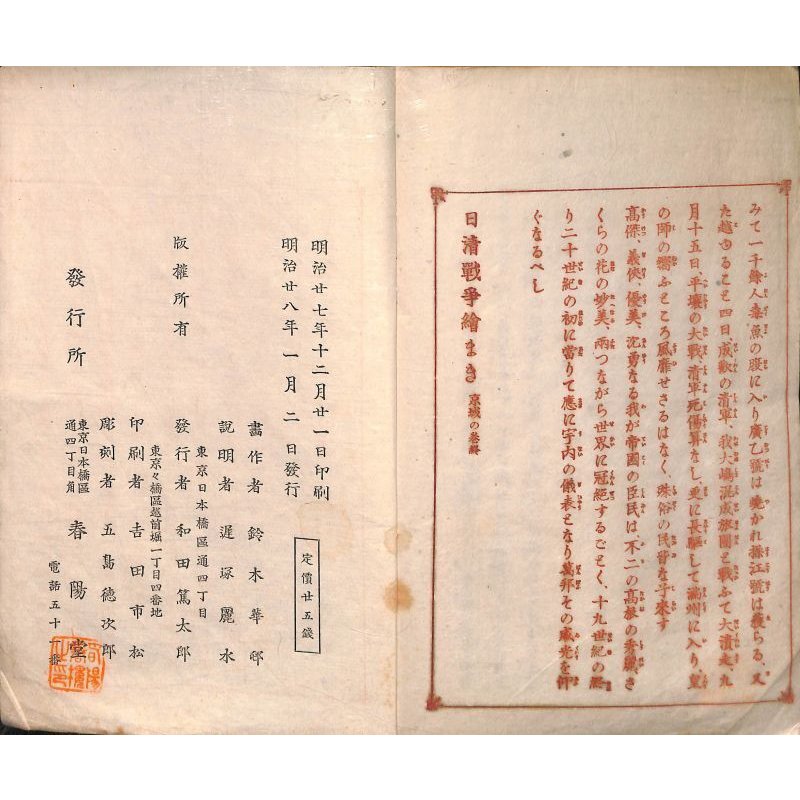 みて一千餘人毒魚の腹に入り廣乙號は燒かれ操江號は獲らる、又
た越ゆること四日、成歡の清軍、我大嶋混成旅團と戰ふて大潰走九
月十五日、平壤の大戰清軍死傷算なし、更に長驅して滿州に入り、皇
の師の嚮ふところ風靡せさるはなく、殊俗の民皆な子來す
高傑、義俠、優美、沈勇なる我が帝國の臣民は、不二の高根の秀麗、さ
くらの花の妙美、兩つながら世界に冠絕するごとく、十九世紀の終
り二十世紀の初に當りて應に宇内の儀表となり萬邦その威光を仰
ぐなるべし
日清戰爭繪まき 京城の卷終
明治廿七年十二月廿一日印刷
明治廿八年一月二日發行
定價廿五錢
版權所有
畫作者 鈴木華邨
說明者 遲塚麗水
東京日本橋區通四丁目
發行者 和田篤太郎
東京々橋區越前堀一丁目四番地
印刷者 吉田市松
彫刻者 五島德次郎
發行所
東京日本橋區
通四丁目角
春陽堂
電話五十一番